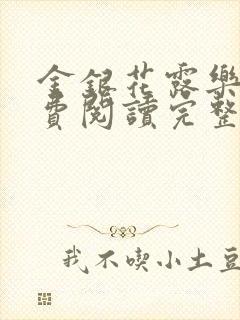 金銀花露樂
費閱讀完整
我不喫小土豆